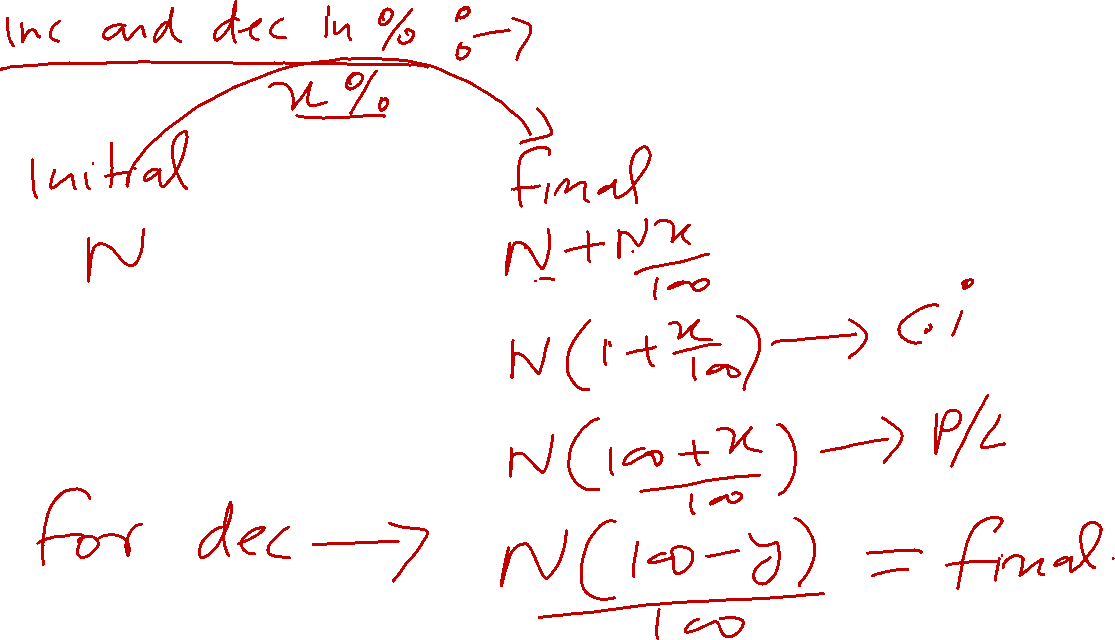 Inc and dec in % :→
x%
Initial Final
N N + Nx/100
N(1 + x/100) → C.i
N(100 + x/100) → P/L
for dec → N(100 - y)/100 = final.